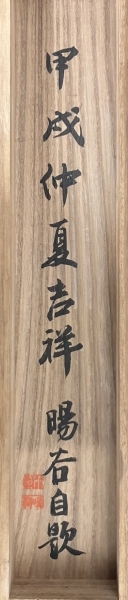 甲戌仲夏吉祥 暘谷自題